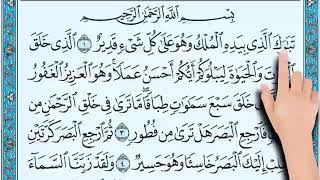 بِسْمِ اللَّهِ الرَّحْمَٰنِ الرَّحِيمِ
تَبَارَكَ الَّذِي بِيَدِهِ الْمُلْكُ وَهُوَ عَلَىٰ كُلِّ شَيْءٍ قَدِيرٌ ١ الَّذِي خَلَقَ
وَالْحَيَاةَ لِيَبْلُوَكُمْ أَيُّكُمْ أَحْسَنُ عَمَلًا وَهُوَ الْعَزِيزُ الْغَفُورُ
خَلَقَ سَبْعَ سَمَاوَاتٍ طِبَاقًا مَا تَرَىٰ فِي خَلْقِ الرَّحْمَٰنِ مِنْ
فَارْجِعِ الْبَصَرَ هَلْ تَرَىٰ مِنْ فُطُورٍ ٣ ثُمَّ ارْجِعِ الْبَصَرَ كَرَّتَيْنِ
إِلَيْكَ الْبَصَرُ خَاسِئًا وَهُوَ حَسِيرٌ ٤ وَلَقَدْ زَيَّنَّا السَّمَاءَ